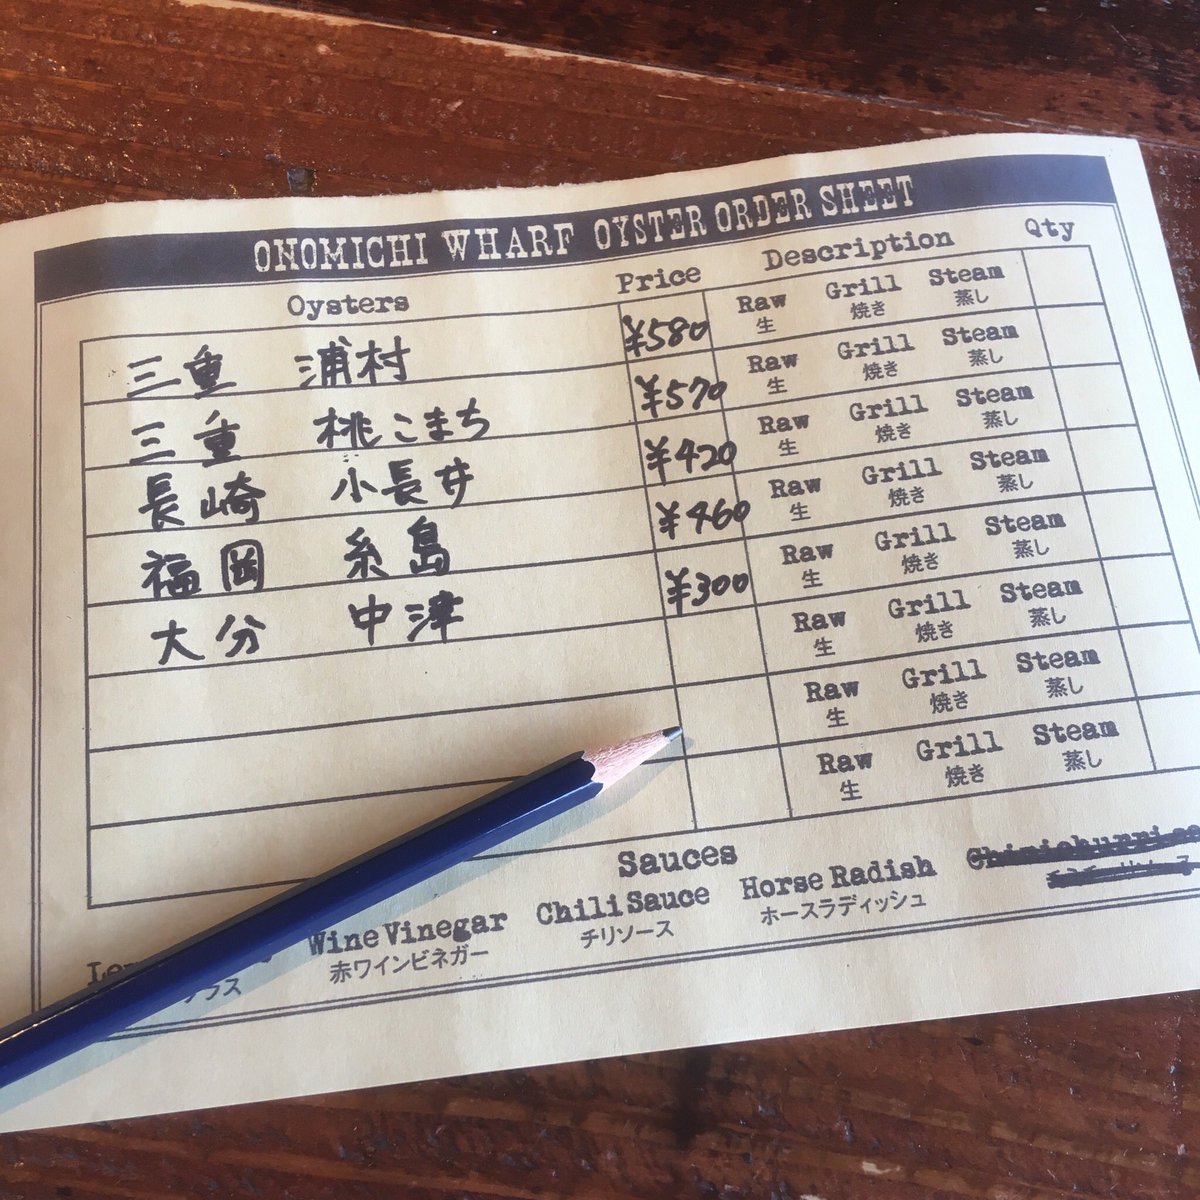 ONOMICHI WHARF OYSTER ORDER SHEET
Oysters Price Description Qty
三重 浦村 ¥580 Raw Grill Steam
生 焼き 蒸し
三重 桃こまち ¥570 Raw Grill Steam
生 焼き 蒸し
長崎 小長井 ¥420 Raw Grill Steam
生 焼き 蒸し
福岡 糸島 ¥460 Raw Grill Steam
生 焼き 蒸し
大分 中津 ¥300 Raw Grill Steam
生 焼き 蒸し
Raw Grill Steam
生 焼き 蒸し
Raw Grill Steam
生 焼き 蒸し
Raw Grill Steam
生 焼き 蒸し
Sauces
Wine Vinegar Chili Sauce Horse Radish
赤ワインビネガー チリソース ホースラディッシュ